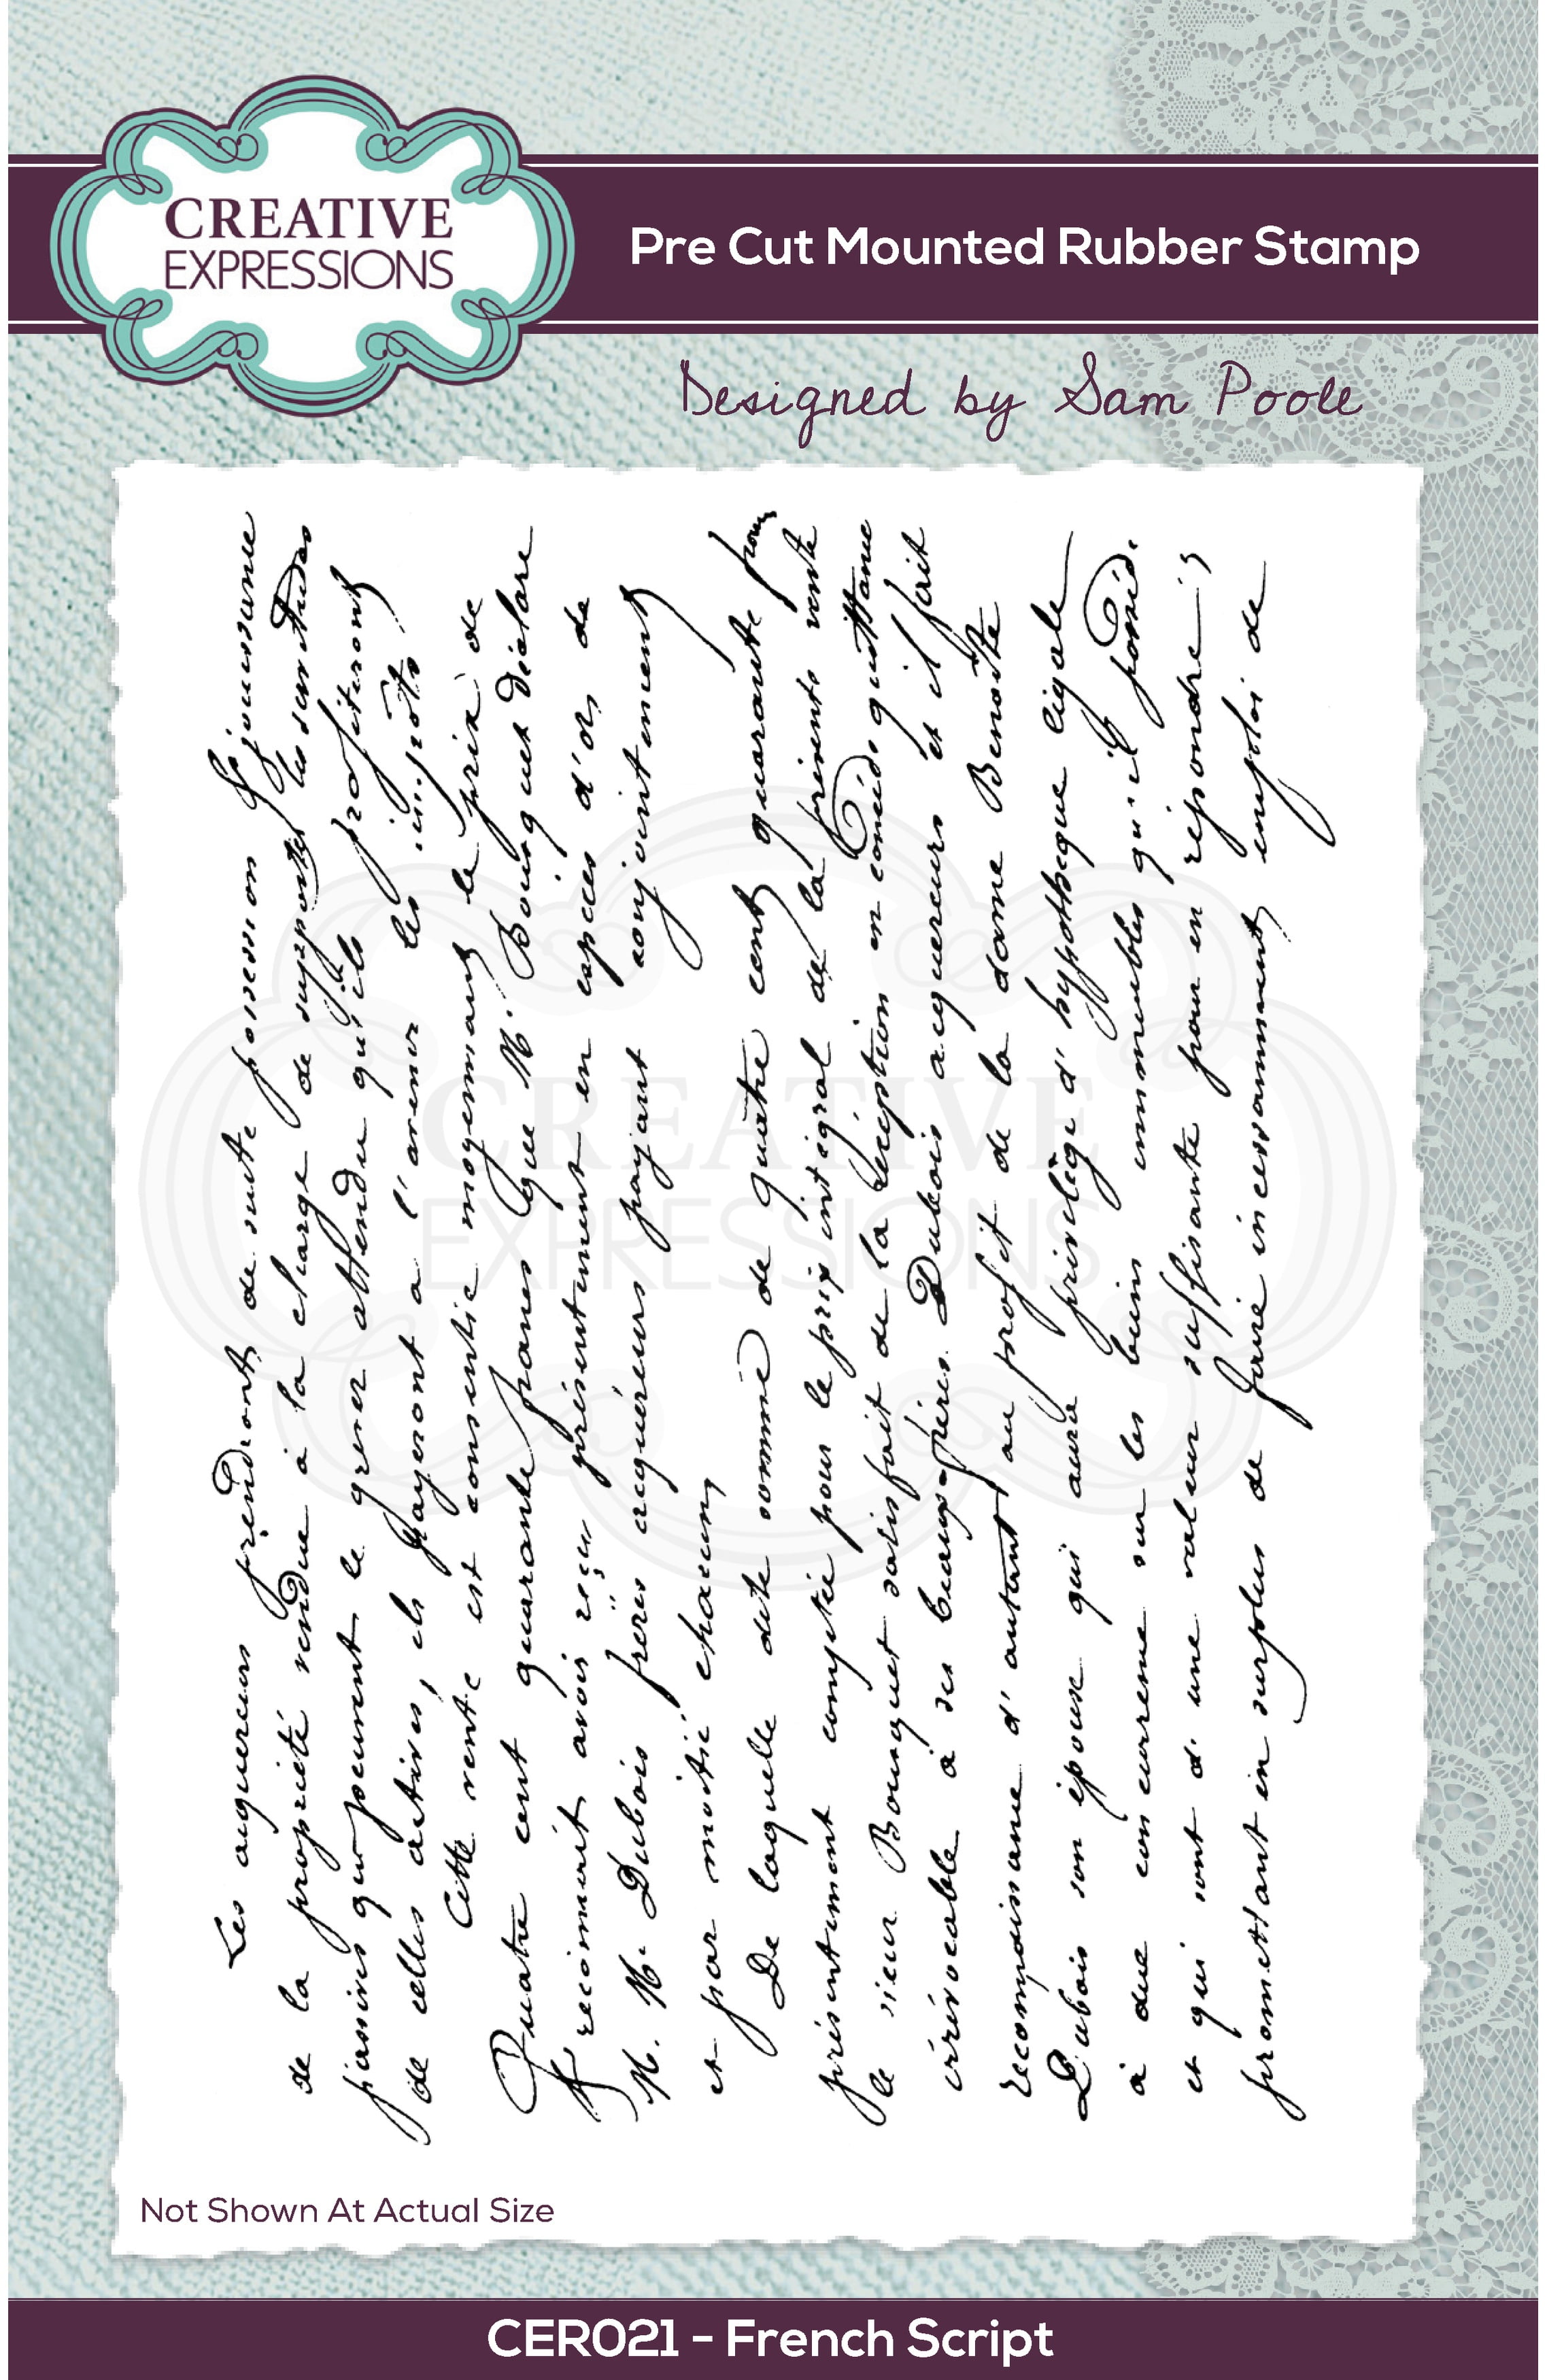 CREATIVE
EXPRESSIONS
Pre Cut Mounted Rubber Stamp
Designed by Sam Poole
Les acquereurs prendront de suite possession & jouissance
de la propriété vendue à la charge de supporter les servitudes
passives qui peuvent le grever attendu qu'ils profiteront
de celles actives, ils payeront a l'avenir les impôts
Cette vente est consentie moyennant le prix de
Quatre cent quarante francs que M. Bousquet déclare
reconnait avoir reçu présentement en espèces d'or, de
M. M. Dubois freres acquéreurs payant conjointement
et par moitié chacun,
De laquelle dite somme de quatre cent quarante francs
présentement comptée pour le prix intégral de la présente vente
le sieur Bousquet satisfait de la réception en conséde quittance
irrévocable à ses beaux-frères. Dubois acquereurs et il fait
reconnaissance d'autant au profit de la dame Benoite
Dubois son épouse qui aura privilège d'hypotheque légale
à due concurrence sur les biens immeubles qu'il posséd.
et qui sont d'une valeur suffisante pour en répondre,
promettant in surplus de faire incessamment emploi de
CREATIVE
EXPRESSIONS
Not Shown At Actual Size
CER021 - French Script